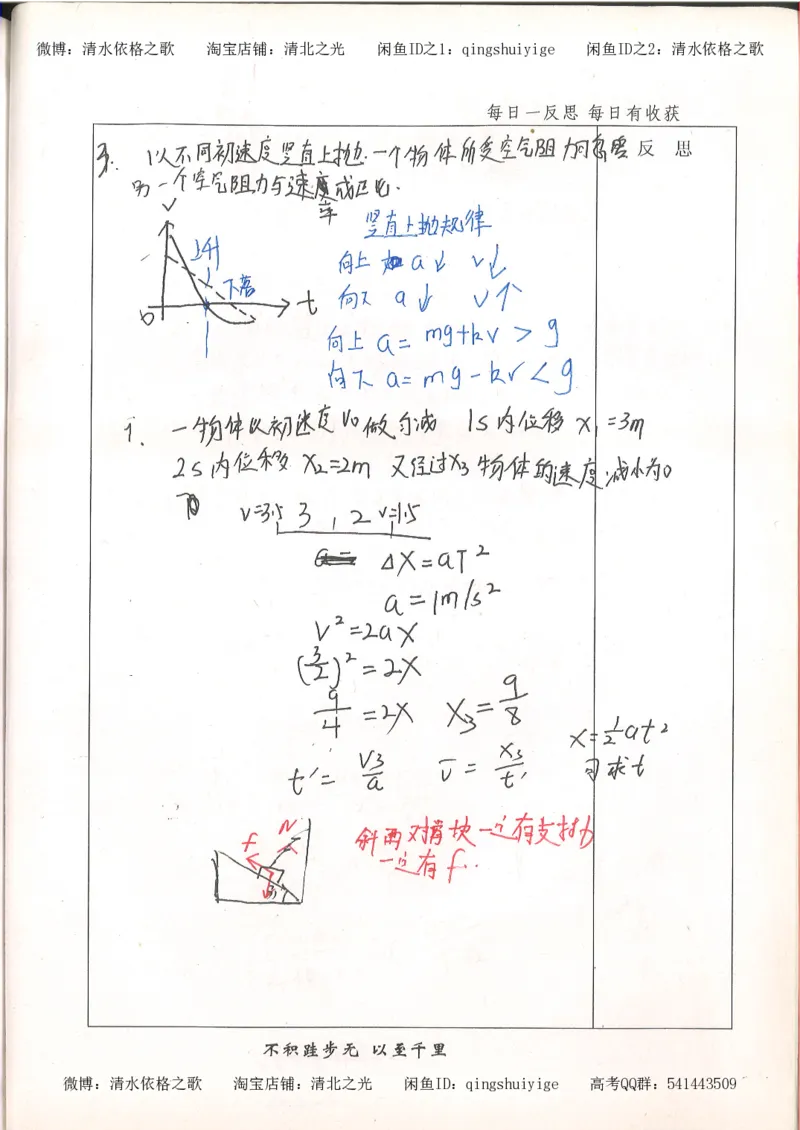 微博：清水依格之歌 淘宝店铺：清北之光 闲鱼ID之1：qingshuiyige 闲鱼ID之2：清水依格之歌
每日一反思 每日有收获
反 思
3. 以不同初速度竖直上抛.一个物体所受空气阻力可忽略
另一个空气阻力与速度成正比.
率
v
上升
下落
t
0
竖直上抛规律
向上 a↓ v↓
向下 a↓ v↑
向上 a=mg+kv>g
向下 a=mg-kv<g
1. 一物体以初速度v₀做匀减 1s内位移x₁=3m
2s内位移 x₂=2m 又经过x₃物体的速度减小为0
v=3.5 3 , 2 v=1.5
a=
Δx=aT²
a=1m/s²
v²=2ax
(3/2)²=2x
9/4=2x x₃=9/8
x=½at²
可求t
t'=v₃/a v̄=x₃/t'
N
f
斜面对滑块一定有支持力
一定有f..
不积跬步无 以至千里
微博：清水依格之歌 淘宝店铺：清北之光 闲鱼ID：qingshuiyige 高考QQ群：541443509